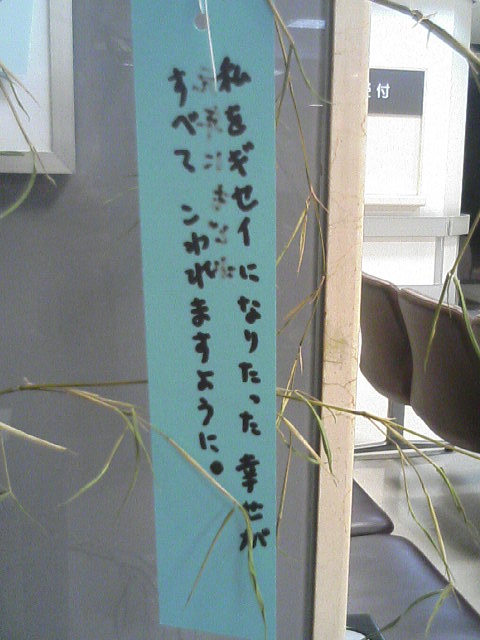 私をギセイになりたった 幸せが
すべて こわれますように。
受付